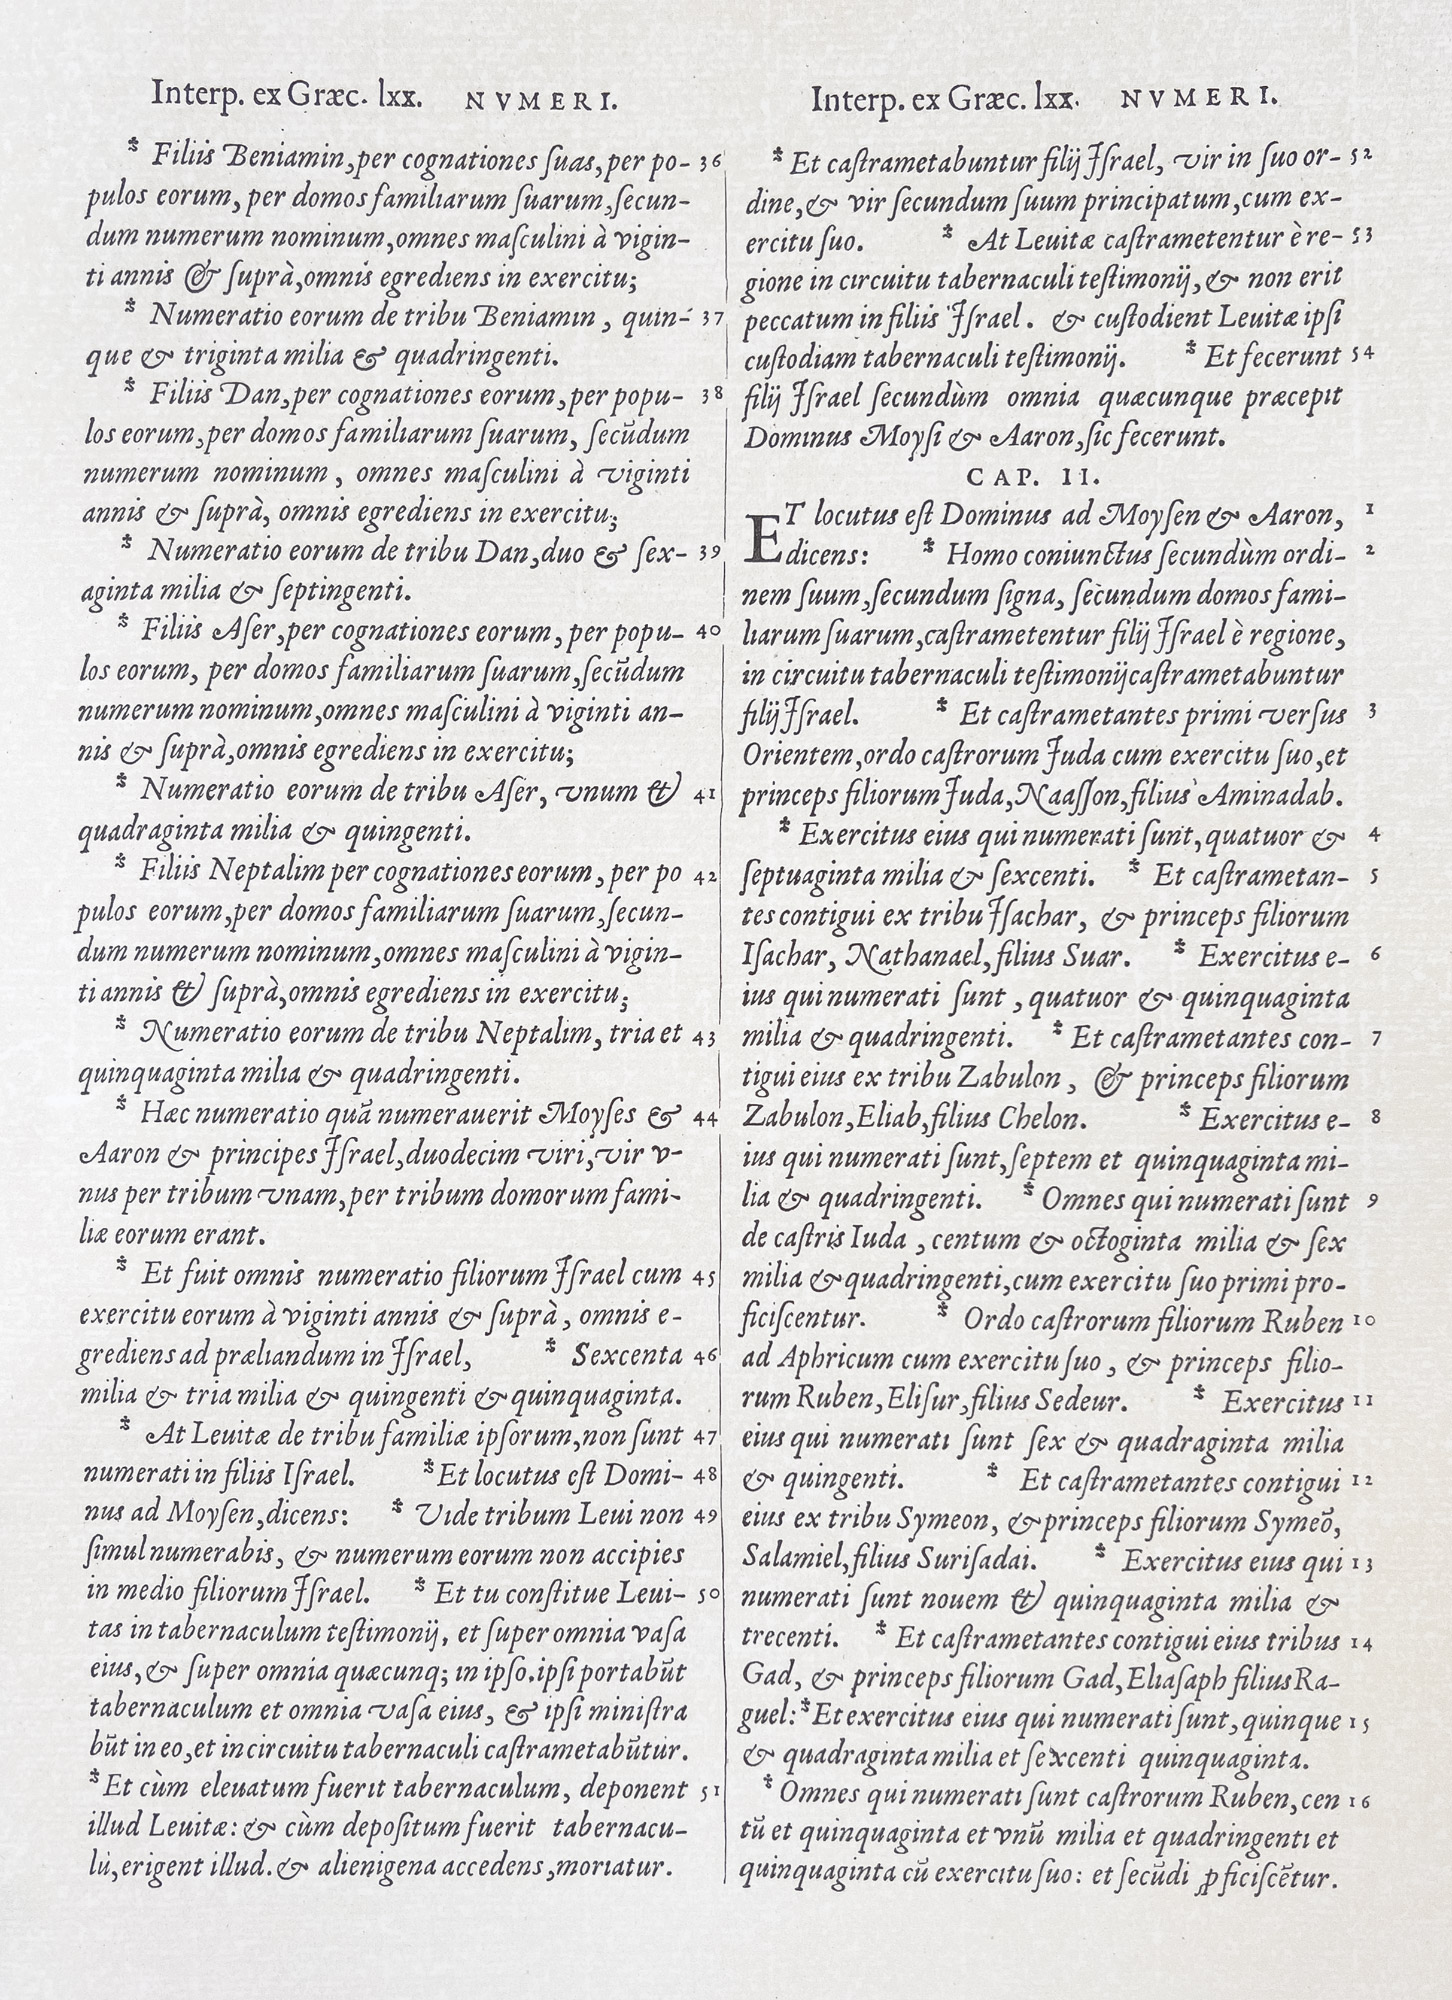 Interp. ex Græc. lxx. NVMERI.
* Filiis Beniamin, per cognationes ſuas, per po- 36
pulos eorum, per domos familiarum ſuarum, ſecun-
dum numerum nominum, omnes maſculini à vigin-
ti annis & ſuprà, omnis egrediens in exercitu;
* Numeratio eorum de tribu Beniamin, quin- 37
que & triginta milia & quadringenti.
* Filiis Dan, per cognationes eorum, per popu- 38
los eorum, per domos familiarum ſuarum, ſecũdum
numerum nominum, omnes maſculini à viginti
annis & ſuprà, omnis egrediens in exercitu;
* Numeratio eorum de tribu Dan, duo & ſex- 39
aginta milia & ſeptingenti.
* Filiis Aſer, per cognationes eorum, per popu- 40
los eorum, per domos familiarum ſuarum, ſecũdum
numerum nominum, omnes maſculini à viginti an-
nis & ſuprà, omnis egrediens in exercitu;
* Numeratio eorum de tribu Aſer, vnum & 41
quadraginta milia & quingenti.
* Filiis Neptalim per cognationes eorum, per po 42
pulos eorum, per domos familiarum ſuarum, ſecun-
dum numerum nominum, omnes maſculini à vigin-
ti annis & ſuprà, omnis egrediens in exercitu;
* Numeratio eorum de tribu Neptalim, tria et 43
quinquaginta milia & quadringenti.
* Hæc numeratio quã numerauerit Moyſes & 44
Aaron & principes Iſrael, duodecim viri, vir v-
nus per tribum vnam, per tribum domorum fami-
liæ eorum erant.
* Et fuit omnis numeratio filiorum Iſrael cum 45
exercitu eorum à viginti annis & ſuprà, omnis e-
grediens ad præliandum in Iſrael, * Sexcenta 46
milia & tria milia & quingenti & quinquaginta.
* At Leuitæ de tribu familiæ ipſorum, non ſunt 47
numerati in filiis Iſrael. * Et locutus eſt Domi- 48
nus ad Moyſen, dicens: * Vide tribum Leui non 49
ſimul numerabis, & numerum eorum non accipies
in medio filiorum Iſrael. * Et tu conſtitue Leui- 50
tas in tabernaculum teſtimonij, et ſuper omnia vaſa
eius, & ſuper omnia quæcunq; in ipſo. ipſi portabũt
tabernaculum et omnia vaſa eius, & ipſi miniſtra
bũt in eo, et in circuitu tabernaculi caſtrametabũtur.
* Et cùm eleuatum fuerit tabernaculum, deponent 51
illud Leuitæ: & cùm depoſitum fuerit tabernacu-
lũ, erigent illud. & alienigena accedens, moriatur.
Interp. ex Græc. lxx. NVMERI.
* Et caſtrametabuntur filij Iſrael, vir in ſuo or- 52
dine, & vir ſecundum ſuum principatum, cum ex-
ercitu ſuo. * At Leuitæ caſtrametentur è re- 53
gione in circuitu tabernaculi teſtimonij, & non erit
peccatum in filiis Iſrael. & cuſtodient Leuitæ ipſi
cuſtodiam tabernaculi teſtimonij. * Et fecerunt 54
filij Iſrael ſecundùm omnia quæcunque præcepit
Dominus Moyſi & Aaron, ſic fecerunt.
CAP. II.
ET locutus eſt Dominus ad Moyſen & Aaron, 1
dicens: * Homo coniunctus ſecundùm ordi- 2
nem ſuum, ſecundum ſigna, ſecundum domos fami-
liarum ſuarum, caſtrametentur filij Iſrael è regione,
in circuitu tabernaculi teſtimonij caſtrametabuntur
filij Iſrael. * Et caſtrametantes primi verſus 3
Orientem, ordo caſtrorum Iuda cum exercitu ſuo, et
princeps filiorum Iuda, Naaſſon, filius Aminadab.
* Exercitus eius qui numerati ſunt, quatuor & 4
ſeptuaginta milia & ſexcenti. * Et caſtrametan- 5
tes contigui ex tribu Iſachar, & princeps filiorum
Iſachar, Nathanael, filius Suar. * Exercitus e- 6
ius qui numerati ſunt, quatuor & quinquaginta
milia & quadringenti. * Et caſtrametantes con- 7
tigui eius ex tribu Zabulon, & princeps filiorum
Zabulon, Eliab, filius Chelon. * Exercitus e- 8
ius qui numerati ſunt, ſeptem et quinquaginta mi-
lia & quadringenti. * Omnes qui numerati ſunt 9
de caſtris Iuda, centum & octoginta milia & ſex
milia & quadringenti, cum exercitu ſuo primi pro-
ficiſcentur. * Ordo caſtrorum filiorum Ruben 10
ad Aphricum cum exercitu ſuo, & princeps filio-
rum Ruben, Eliſur, filius Sedeur. * Exercitus 11
eius qui numerati ſunt ſex & quadraginta milia
& quingenti. * Et caſtrametantes contigui 12
eius ex tribu Symeon, & princeps filiorum Symeõ,
Salamiel, filius Suriſadai. * Exercitus eius qui 13
numerati ſunt nouem & quinquaginta milia &
trecenti. * Et caſtrametantes contigui eius tribus 14
Gad, & princeps filiorum Gad, Eliaſaph filius Ra-
guel: * Et exercitus eius qui numerati ſunt, quinque 15
& quadraginta milia et ſexcenti quinquaginta.
* Omnes qui numerati ſunt caſtrorum Ruben, cen 16
tũ et quinquaginta et vnũ milia et quadringenti et
quinquaginta cũ exercitu ſuo: et ſecũdi ꝓficiſcẽtur.